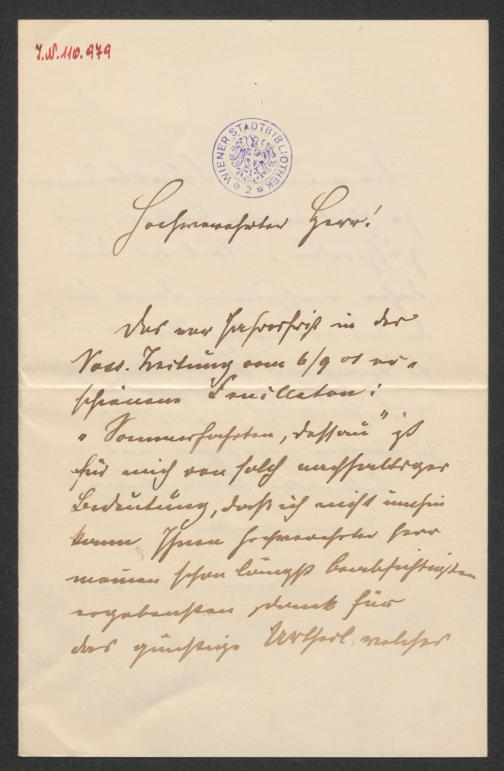 I.N. 110.979
WIENER STADTBIBLIOTHEK
2
Hochverehrter Herr!
Das vor Jahresfrist in der
Voss. Zeitung vom 6/9 01 er-
schienene Feuilleton:
„Sommerfahrten, Dessau" ist
für mich von solch nachhaltiger
Bedeutung, daß ich nicht umhin
kann Ihnen hochverehrter Herr
meinen schon längst beabsichtigten
ergebensten Dank für
das günstige Urtheil, welches